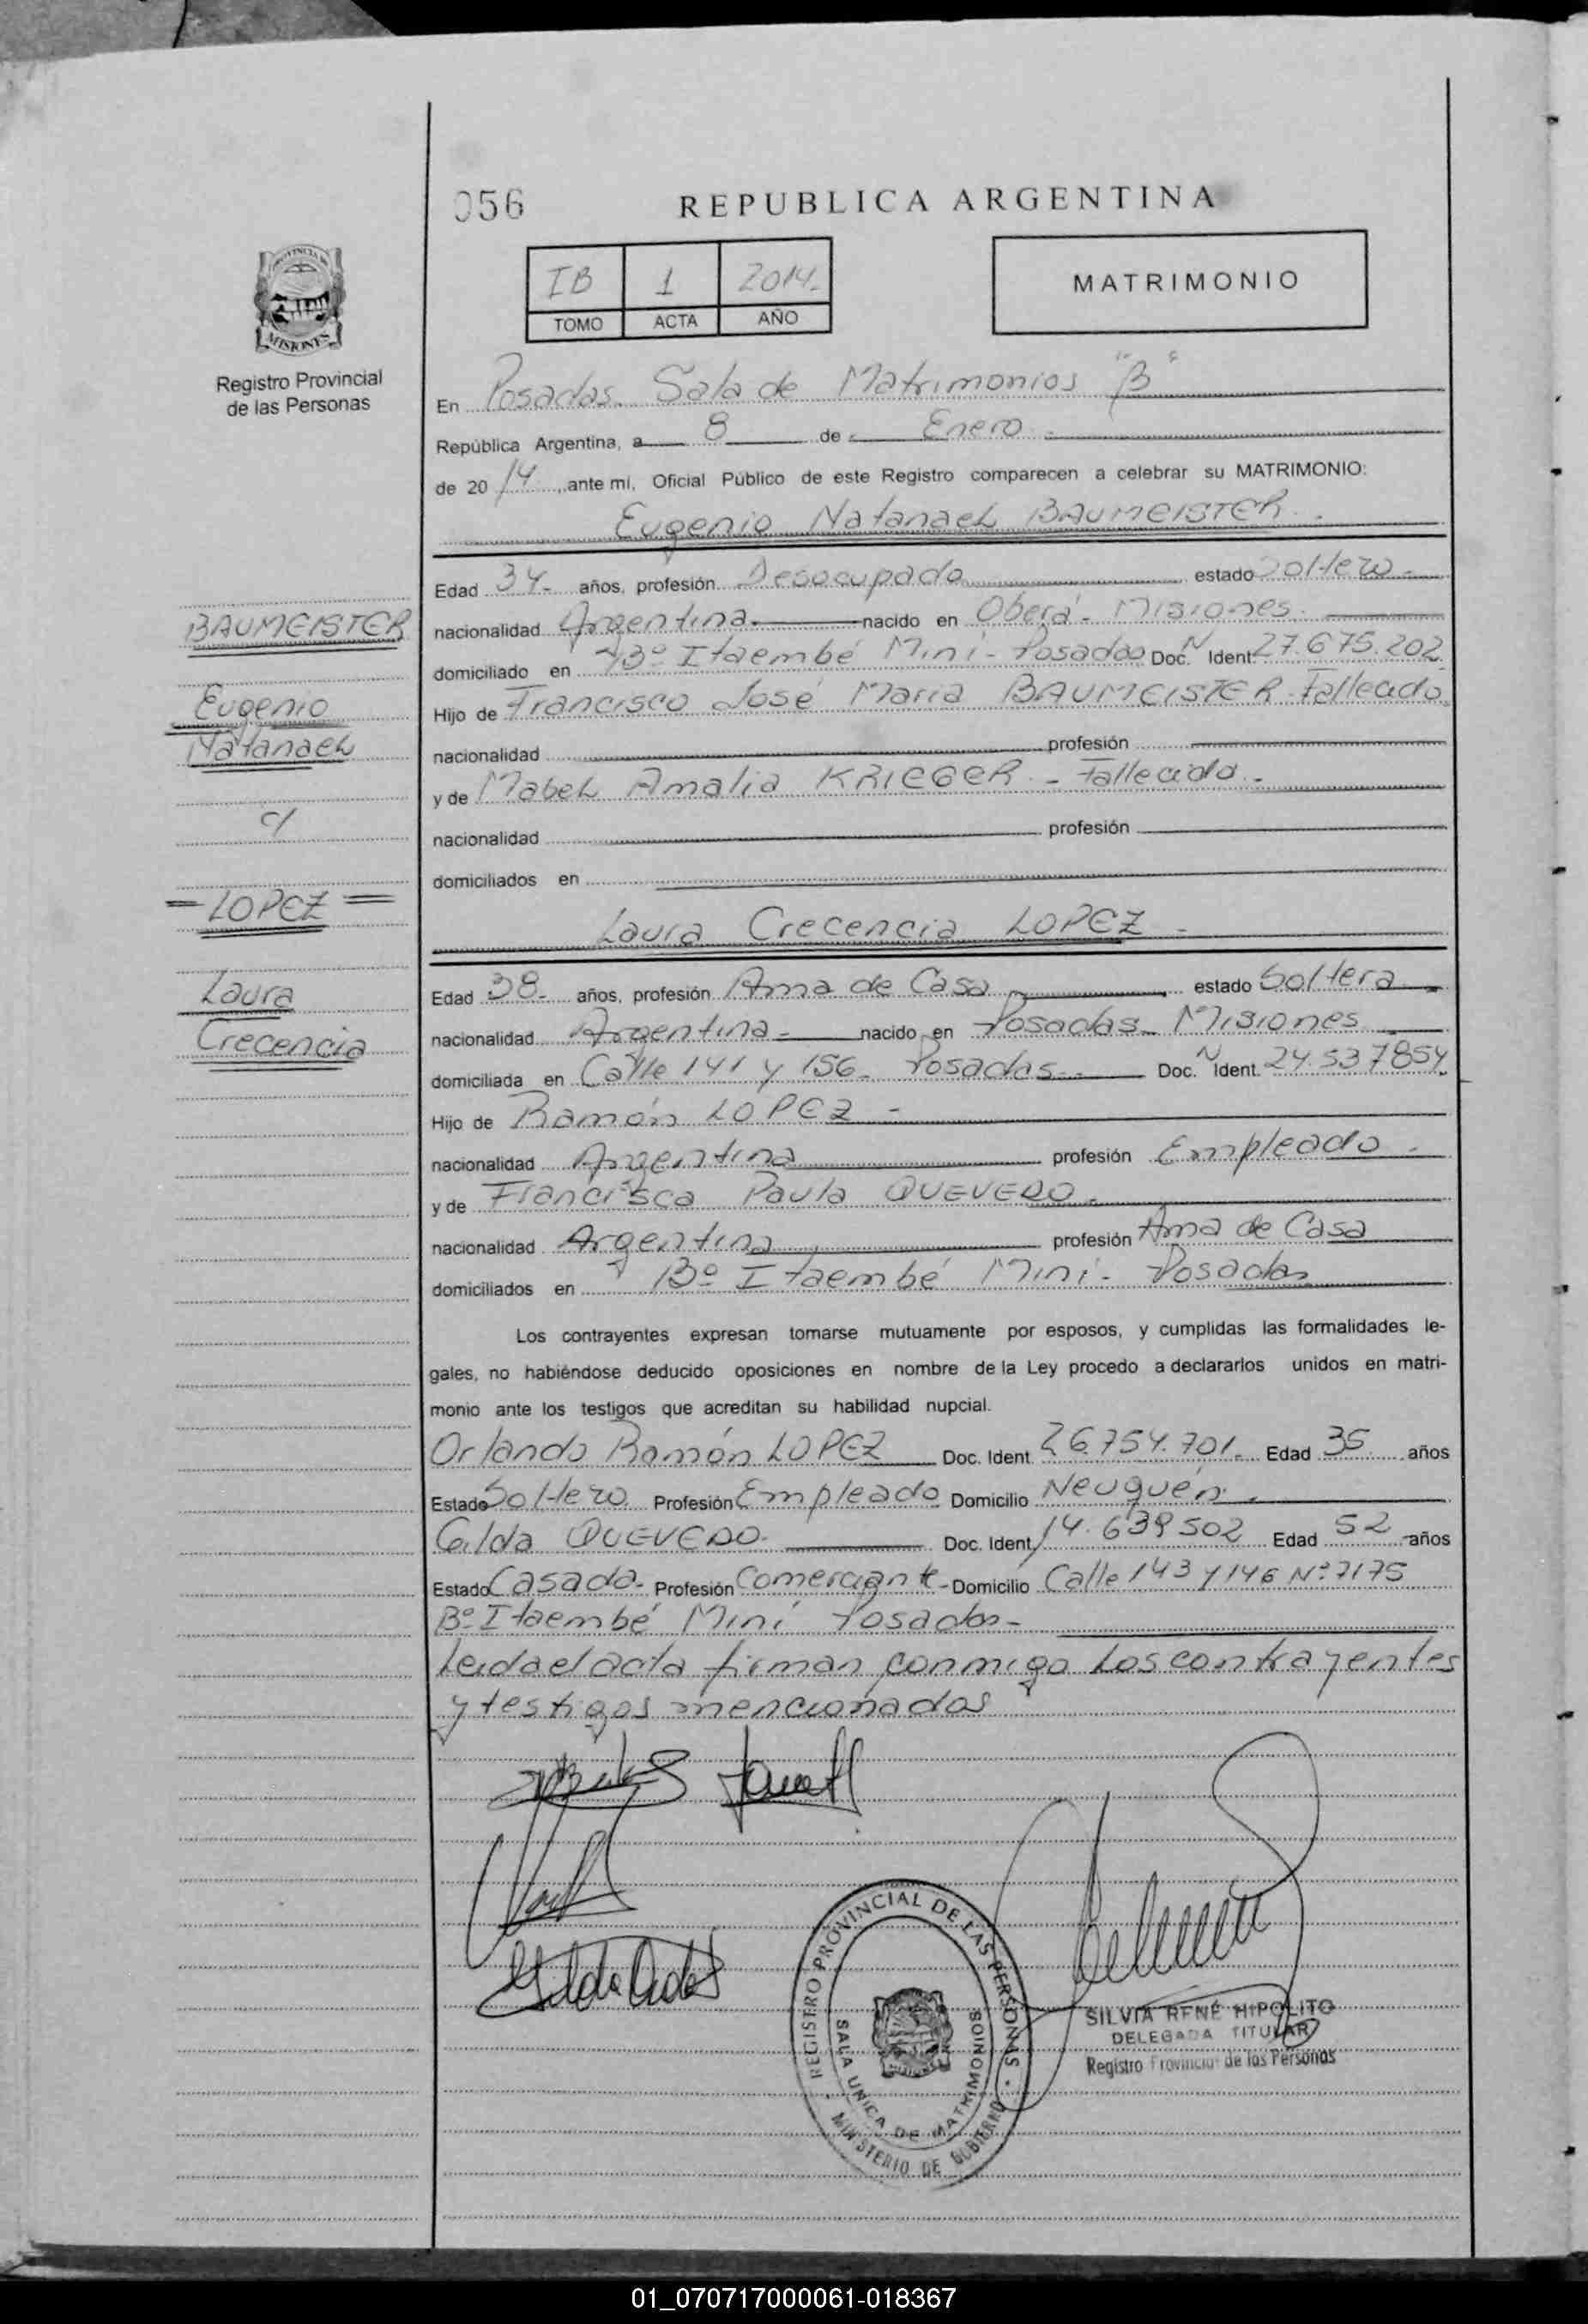 056
REPUBLICA ARGENTINA
IB 1 2014.
TOMO ACTA AÑO
MATRIMONIO
PROVINCIA DE
MISIONES
Registro Provincial
de las Personas
En Posadas. Sala de Matrimonios "B"
República Argentina, a 8 de Enero
de 20 14, ante mí, Oficial Público de este Registro comparecen a celebrar su MATRIMONIO:
Eugenio Natanael BAUMEISTER.
Edad 34- años, profesión Desocupado estado Soltero-
nacionalidad Argentina. nacido en Oberá- Misiones.
domiciliado en Bº Itaembé Miní- Posadas Doc. N Ident. 27.675.202
Hijo de Francisco José Maria BAUMEISTER- Fallecido
nacionalidad profesión
y de Mabel Amalia KRIEGER - Fallecida-
nacionalidad profesión
domiciliados en
Laura Crecencia LOPEZ-
Edad 38- años, profesión Ama de Casa estado Soltera
nacionalidad Argentina- nacido en Posadas- Misiones
domiciliada en Calle 141 y 156- Posadas- Doc. N Ident. 24.537854
Hijo de Ramón LOPEZ-
nacionalidad Argentina profesión Empleado.
y de Francisca Paula QUEVEDO-
nacionalidad Argentina profesión Ama de Casa
domiciliados en Bº Itaembé Miní- Posadas
BAUMEISTER
Eugenio
Natanael
c/
=LOPEZ=
Laura
Crecencia
Los contrayentes expresan tomarse mutuamente por esposos, y cumplidas las formalidades le-
gales, no habiéndose deducido oposiciones en nombre de la Ley procedo a declararlos unidos en matri-
monio ante los testigos que acreditan su habilidad nupcial.
Orlando Ramón LOPEZ Doc. Ident 26.754.701- Edad 35 años
Estado Soltero Profesión Empleado Domicilio Neuquén.
Gilda QUEVEDO- Doc. Ident. 14.639502 Edad 52 años
Estado Casada- Profesión Comerciante- Domicilio Calle 143 y 146 Nº 7175
Bº Itaembé Miní Posadas-
Leida el acta firman conmigo los contrayentes
y testigos mencionados
REGISTRO PROVINCIAL DE LAS PERSONAS
SALA UNICA DE MATRIMONIOS
MINISTERIO DE GOBIERNO
SILVIA RENÉ HIPOLITO
DELEGADA TITULAR
Registro Provincial de las Personas
01_070717000061-018367